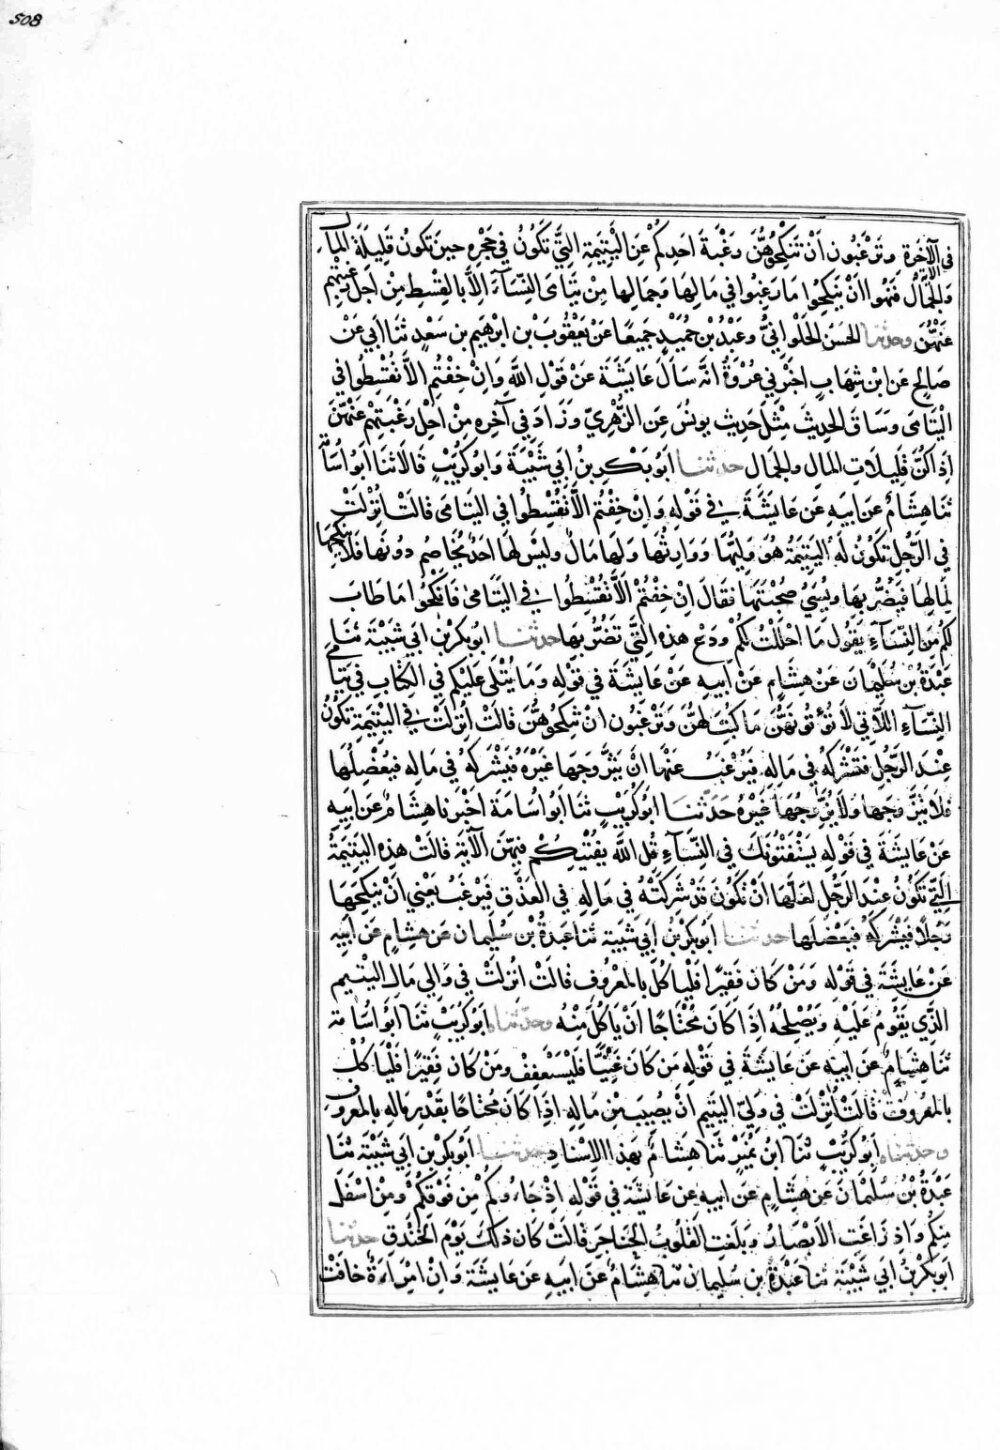 508
في الآخرة وترغبون أن تنكحوهن رغبة أحدكم عن اليتيمة التي تكون في حجره حين تكون قليلة المال
والجمال فنهوا أن ينكحوا ما رغبوا في مالها وجمالها من يتامى النساء إلا بالقسط من أجل رغبتهم
عنهن وحدثنا الحسن الحلواني وعبد بن حميد جميعا عن يعقوب بن ابرهيم بن سعد ثنا أبي عن
صالح عن ابن شهاب اخبرني عروة انه سأل عايشة عن قول الله وإن خفتم ألا تقسطوا في
اليتامى وساق الحديث مثل حديث يونس عن الزهري وزاد في آخره من أجل رغبتهم عنهن
إذا كن قليلات المال والجمال حدثنا أبو بكر بن أبي شيبة وابو كريب قالا ثنا ابو اسامة
ثنا هشام عن ابيه عن عايشة في قوله وإن خفتم ألا تقسطوا في اليتامى قالت أنزلت
في الرجل تكون له اليتيمة هو وليها ووارثها ولها مال وليس لها احد يخاصم دونها فلا ينكحها
لمالها فيضر بها ويسيء صحبتها فقال إن خفتم ألا تقسطوا في اليتامى فانكحوا ما طاب
لكم من النساء يقول ما احللت لكم ودع هذه التي تضر بها حدثنا ابو بكر بن ابي شيبة ثنا
عبدة بن سليمان عن هشام عن ابيه عن عايشة في قوله وما يتلى عليكم في الكتاب في يتامى
النساء اللاتي لا تؤتونهن ما كتب لهن وترغبون ان تنكحوهن قالت أنزلت في اليتيمة تكون
عند الرجل فتشركه في ماله فيرغب عنها أن يتزوجها ويكره أن يزوجها غيره فيشركه في ماله فيعضلها
فلا يتزوجها ولا يزوجها غيره حدثنا ابو كريب ثنا أبو اسامة اخبرنا هشام عن ابيه
عن عايشة في قوله يستفتونك في النساء قل الله يفتيكم فيهن الآية قالت هذه اليتيمة
التي تكون عند الرجل لعلها أن تكون قد شركته في ماله في العذق فيرغب يعني أن ينكحها
رجلا فيشركه فيعضلها حدثنا أبو بكر بن أبي شيبة ثنا عبدة بن سليمان عن هشام عن ابيه
عن عايشة في قوله ومن كان فقيرا فليأكل بالمعروف قالت انزلت في والي مال اليتيم
الذي يقوم عليه ويصلحه إذا كان محتاجا أن يأكل منه وحدثناه ابو كريب ثنا ابو اسامة
ثنا هشام عن ابيه عن عايشة في قوله من كان غنيا فليستعفف ومن كان فقيرا فليأكل
بالمعروف قالت انزلت في ولي اليتيم أن يصيب من ماله إذا كان محتاجا بقدر ماله بالمعروف
وحدثناه أبو كريب ثنا ابن نمير ثنا هشام بهذا الاسناد حدثنا أبو بكر بن أبي شيبة ثنا
عبدة بن سليمان عن هشام عن ابيه عن عايشة في قوله إذ جاءوكم من فوقكم ومن اسفل
منكم واذ زاغت الابصار وبلغت القلوب الحناجر قالت كان ذلك يوم الخندق حدثنا
ابو بكر بن أبي شيبة ثنا عبدة بن سليمان ثنا هشام عن ابيه عن عايشة وان امراءة خافت